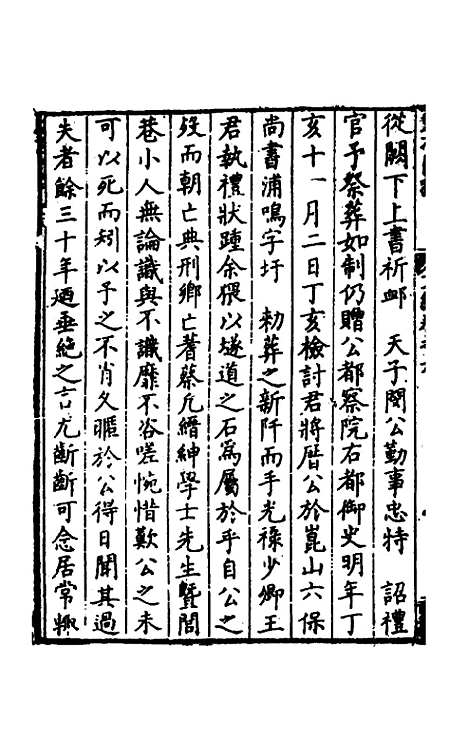 從闕下上書祈衈　天子閔公勤事忠特　詔禮
官予祭葬如制仍贈公都察院右都御史明年丁
亥十一月二日丁亥檢討君將厝公於崑山六保
尚書浦鳴字圩　勑葬之新阡而手光祿少卿王
君執禮狀踵余猥以墜道之石爲屬於乎自公之
歿而朝亡典刑鄉亡蓍蔡凡縉紳學士先生曁閭
巷小人無論識與不識靡不咨嗟惋惜歎公之未
可以死而矧以予之不肖久暱於公得日聞其過
失者餘三十年廼垂絶之言尤斷斷可念居常輙